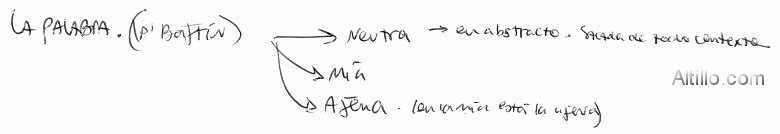 LA PALABRA. (p/ Bajtín) → Neutra → en abstracto. Sacada de todo contexto
→ Mía
Altillo.com
→ Ajena. (en la mía está la ajena)